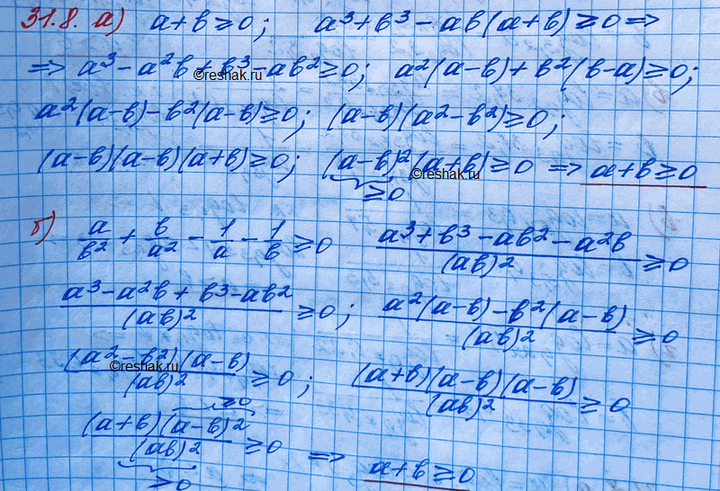 31.8. а) a+b≥0; a³+b³-ab(a+b)≥0 ⇒
⇒ a³-a²b+b³-ab²≥0; a²(a-b)+b²(b-a)≥0;
©reshak.ru
a²(a-b)-b²(a-b)≥0; (a-b)(a²-b²)≥0;
(a-b)(a-b)(a+b)≥0; (a-b)²(a+b)≥0 ⇒ a+b≥0
≥0
©reshak.ru
б) a/b² + b/a² - 1/a - 1/b ≥0 (a³+b³-ab²-a²b)/(ab)² ≥0
(a³-a²b+b³-ab²)/(ab)² ≥0; (a²(a-b)-b²(a-b))/(ab)² ≥0
(a²-b²)(a-b)/(ab)² ≥0; (a+b)(a-b)(a-b)/(ab)² ≥0
©reshak.ru
≥0
(a+b)(a-b)²/(ab)² ≥0 ⇒ a+b≥0
≥0